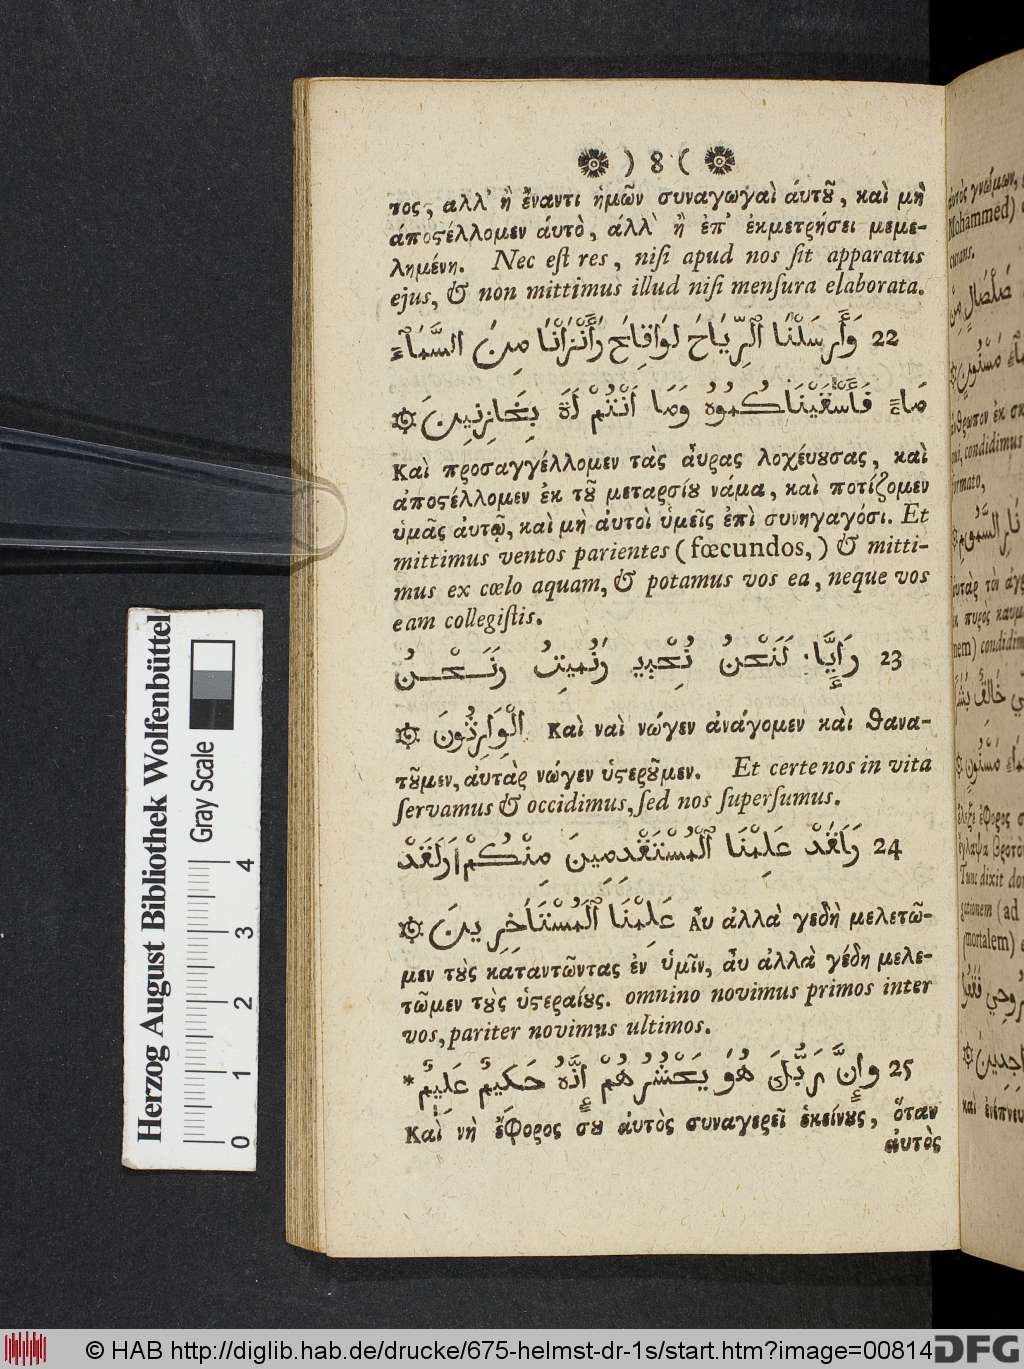 ) 8 (
τος, αλλ' ἢ ἔναντι ἡμῶν συναγωγαὶ ἀυτȣ͂, καὶ μὴ
ἀποϛέλλομεν ἀυτὸ, ἀλλ' ἢ ἐπ' ἐκμετρήσει μεμε-
λημένῃ. Nec eſt res, niſi apud nos ſit apparatus
ejus, & non mittimus illud niſi menſura elaborata.
22 وَأَرْسَلْنَا ٱلرِّيَاحَ لَوَاقِاحَ وَأَنْزَلْنَا مِنَ السَّمَاءِ
مَاءً فَأَسْقَيْنَاكُمُوهُ وَمَا أَنْتُمْ لَهُ بِخَازِنِينَ
Καὶ προσαγγέλλομεν τὰς ἄυρας λοχέυȣσας, καὶ
ἀποϛέλλομεν ἐκ τȣ͂ μεταρσίȣ νάμα, καὶ ποτίζομεν
ὑμᾶς ἀυτῷ, καὶ μὴ ἀυτοὶ ὑμεῖς ἐπὶ συνηγαγόσι. Et
mittimus ventos parientes (fœcundos,) & mitti-
mus ex cœlo aquam, & potamus vos ea, neque vos
eam collegiſtis.
23 وَإِيَّا لَنَحْنُ نُحْيِي وَنُمِيتُ وَنَحْنُ
الْوَارِثُونَ Καὶ ναὶ νώγεν ἀνάγομεν καὶ θανα-
τȣ͂μεν, ἀυτὰρ νώγεν ὑϛερȣ͂μεν. Et certe nos in vita
ſervamus & occidimus, ſed nos ſuperſumus.
24 وَلَقَدْ عَلِمْنَا ٱلْمُسْتَقْدِمِينَ مِنْكُمْ وَلَقَدْ
عَلِمْنَا ٱلْمُسْتَاخِرِينَ Ἀυ ἀλλὰ γεδὴ μελετῶ-
μεν τȣ̀ς καταντῶντας ἐν ὑμῖν, ἀυ ἀλλὰ γέδη μελε-
τῶμεν τȣ̀ς ὑϛεραίȣς. omnino novimus primos inter
vos, pariter novimus ultimos.
25 وَإِنَّ رَبَّكَ هُوَ يَحْشُرُهُمْ إِنَّهُ حَكِيمٌ عَلِيمٌ *
Καὶ νὴ ἔφορος σȣ ἀυτὸς συναγερεῖ ἐκείνȣς, ὅταν
ἀυτὸς
Herzog August Bibliothek Wolfenbüttel
Gray Scale
0 1 2 3 4
© HAB http://diglib.hab.de/drucke/675-helmst-dr-1s/start.htm?image=00814
DFG